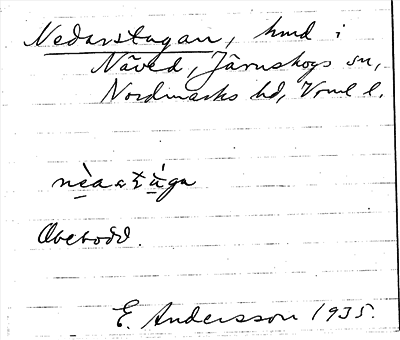 Nedarstugan, hmd i
Näved, Järnskogs sn,
Nordmarks hd, Vrml l.
Obebodd.
E. Andersson 1935.